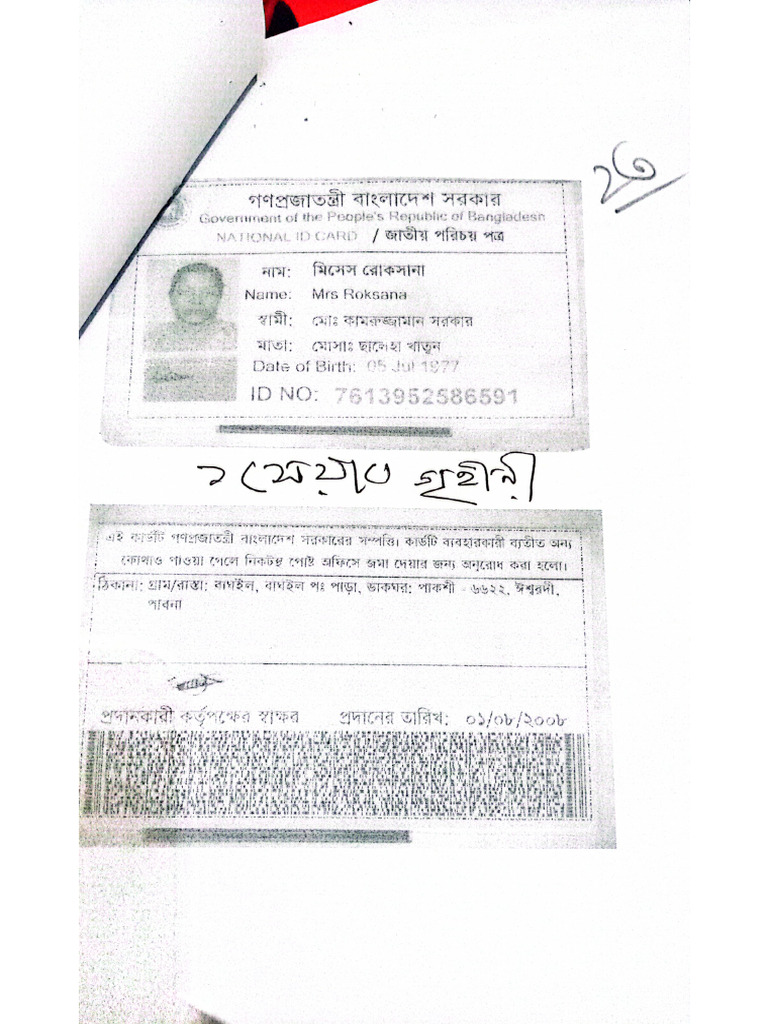 ২৩
গণপ্রজাতন্ত্রী বাংলাদেশ সরকার
Government of the People's Republic of Bangladesh
NATIONAL ID CARD / জাতীয় পরিচয় পত্র
নাম: মিসেস রোকসানা
Name: Mrs Roksana
স্বামী: মোঃ কামরুজ্জামান সরকার
মাতা: মোসাঃ ছালেহা খাতুন
Date of Birth: 05 Jul 1977
ID NO: 7613952586591
গৃহীনী
এই কার্ডটি গণপ্রজাতন্ত্রী বাংলাদেশ সরকারের সম্পত্তি। কার্ডটি ব্যবহারকারী ব্যতীত অন্য
কোথাও পাওয়া গেলে নিকটস্থ পোষ্ট অফিসে জমা দেয়ার জন্য অনুরোধ করা হলো।
ঠিকানা: গ্রাম/রাস্তা: বাঘইল, বাঘইল পঃ পাড়া, ডাকঘর: পাকশী - ৬৬২২, ঈশ্বরদী,
পাবনা
প্রদানকারী কর্তৃপক্ষের স্বাক্ষর প্রদানের তারিখ: ০১/০৮/২০০৮